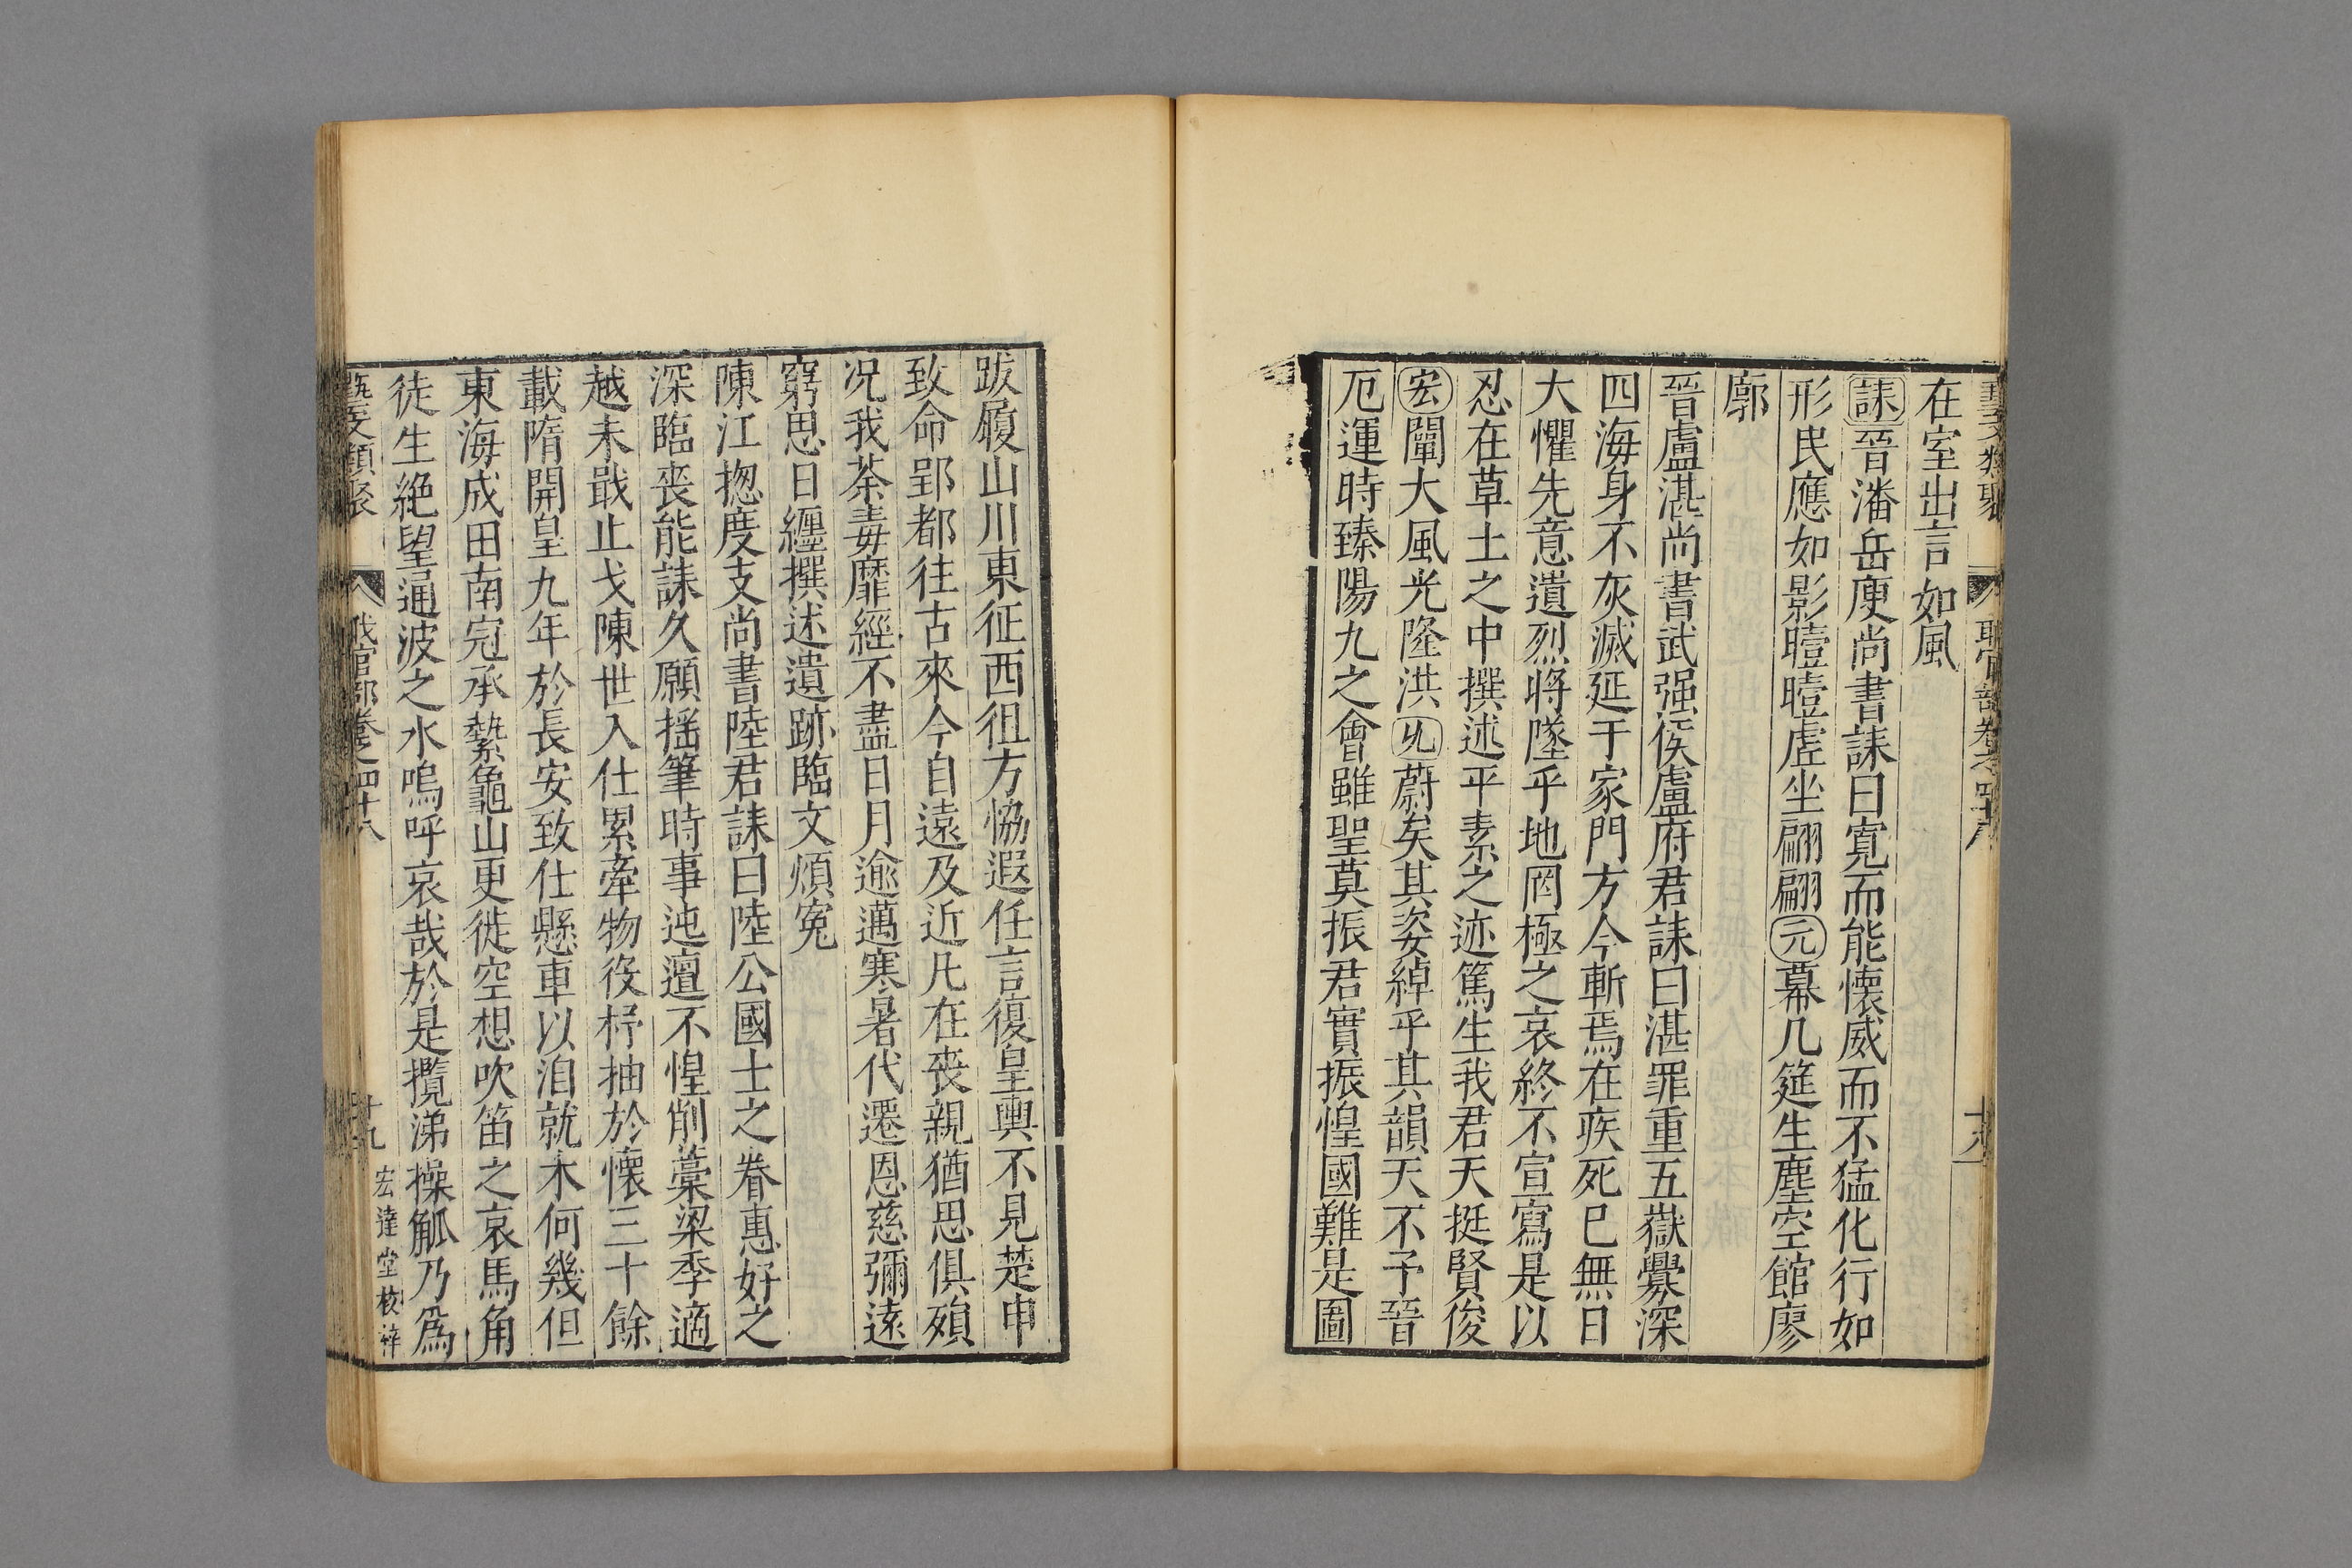 藝文類聚 職官部卷之四十八 十八
在室出言如風
誄晉潘岳庾尚書誄曰寬而能懷威而不猛化行如
形民應如影曀曀虛坐翩翩元幕几筵生塵空館廖
廓
晉盧湛尚書武强侯盧府君誄曰湛罪重五嶽釁深
四海身不灰滅延于家門方今斬焉在疾死巳無日
大懼先意遺烈將墜乎地罔極之哀終不宣寫是以
忍在草土之中撰述平素之迹篤生我君天挺賢俊
宏闡大風光隆洪蔚矣其姿綽乎其韻天不予晉
厄運時臻陽九之會雖聖莫振君實振惶國難是圖
跋履山川東征西徂方恊遐任言復皇輿不見楚申
致命郢都往古來今自遠及近凡在喪親猶思俱殞
况我荼毒靡經不盡日月逾邁寒暑代遷恩慈彌遠
窮思日纒撰述遺跡臨文煩寃
陳江揔度支尚書陸君誄曰陸公國士之眷惠好之
深臨喪能誄久願揺筆時事迍邅不惶削藁梁季適
越未戢止戈陳世入仕累牽物役杼抽於懷三十餘
載隋開皇九年於長安致仕懸車以洎就木何幾但
東海成田南冠承縶龜山更徙空想吹笛之哀馬角
徒生絶望通波之水嗚呼哀哉於是攬涕操觚乃爲
藝文類聚 職官部卷之四十八 十九 宏達堂校梓